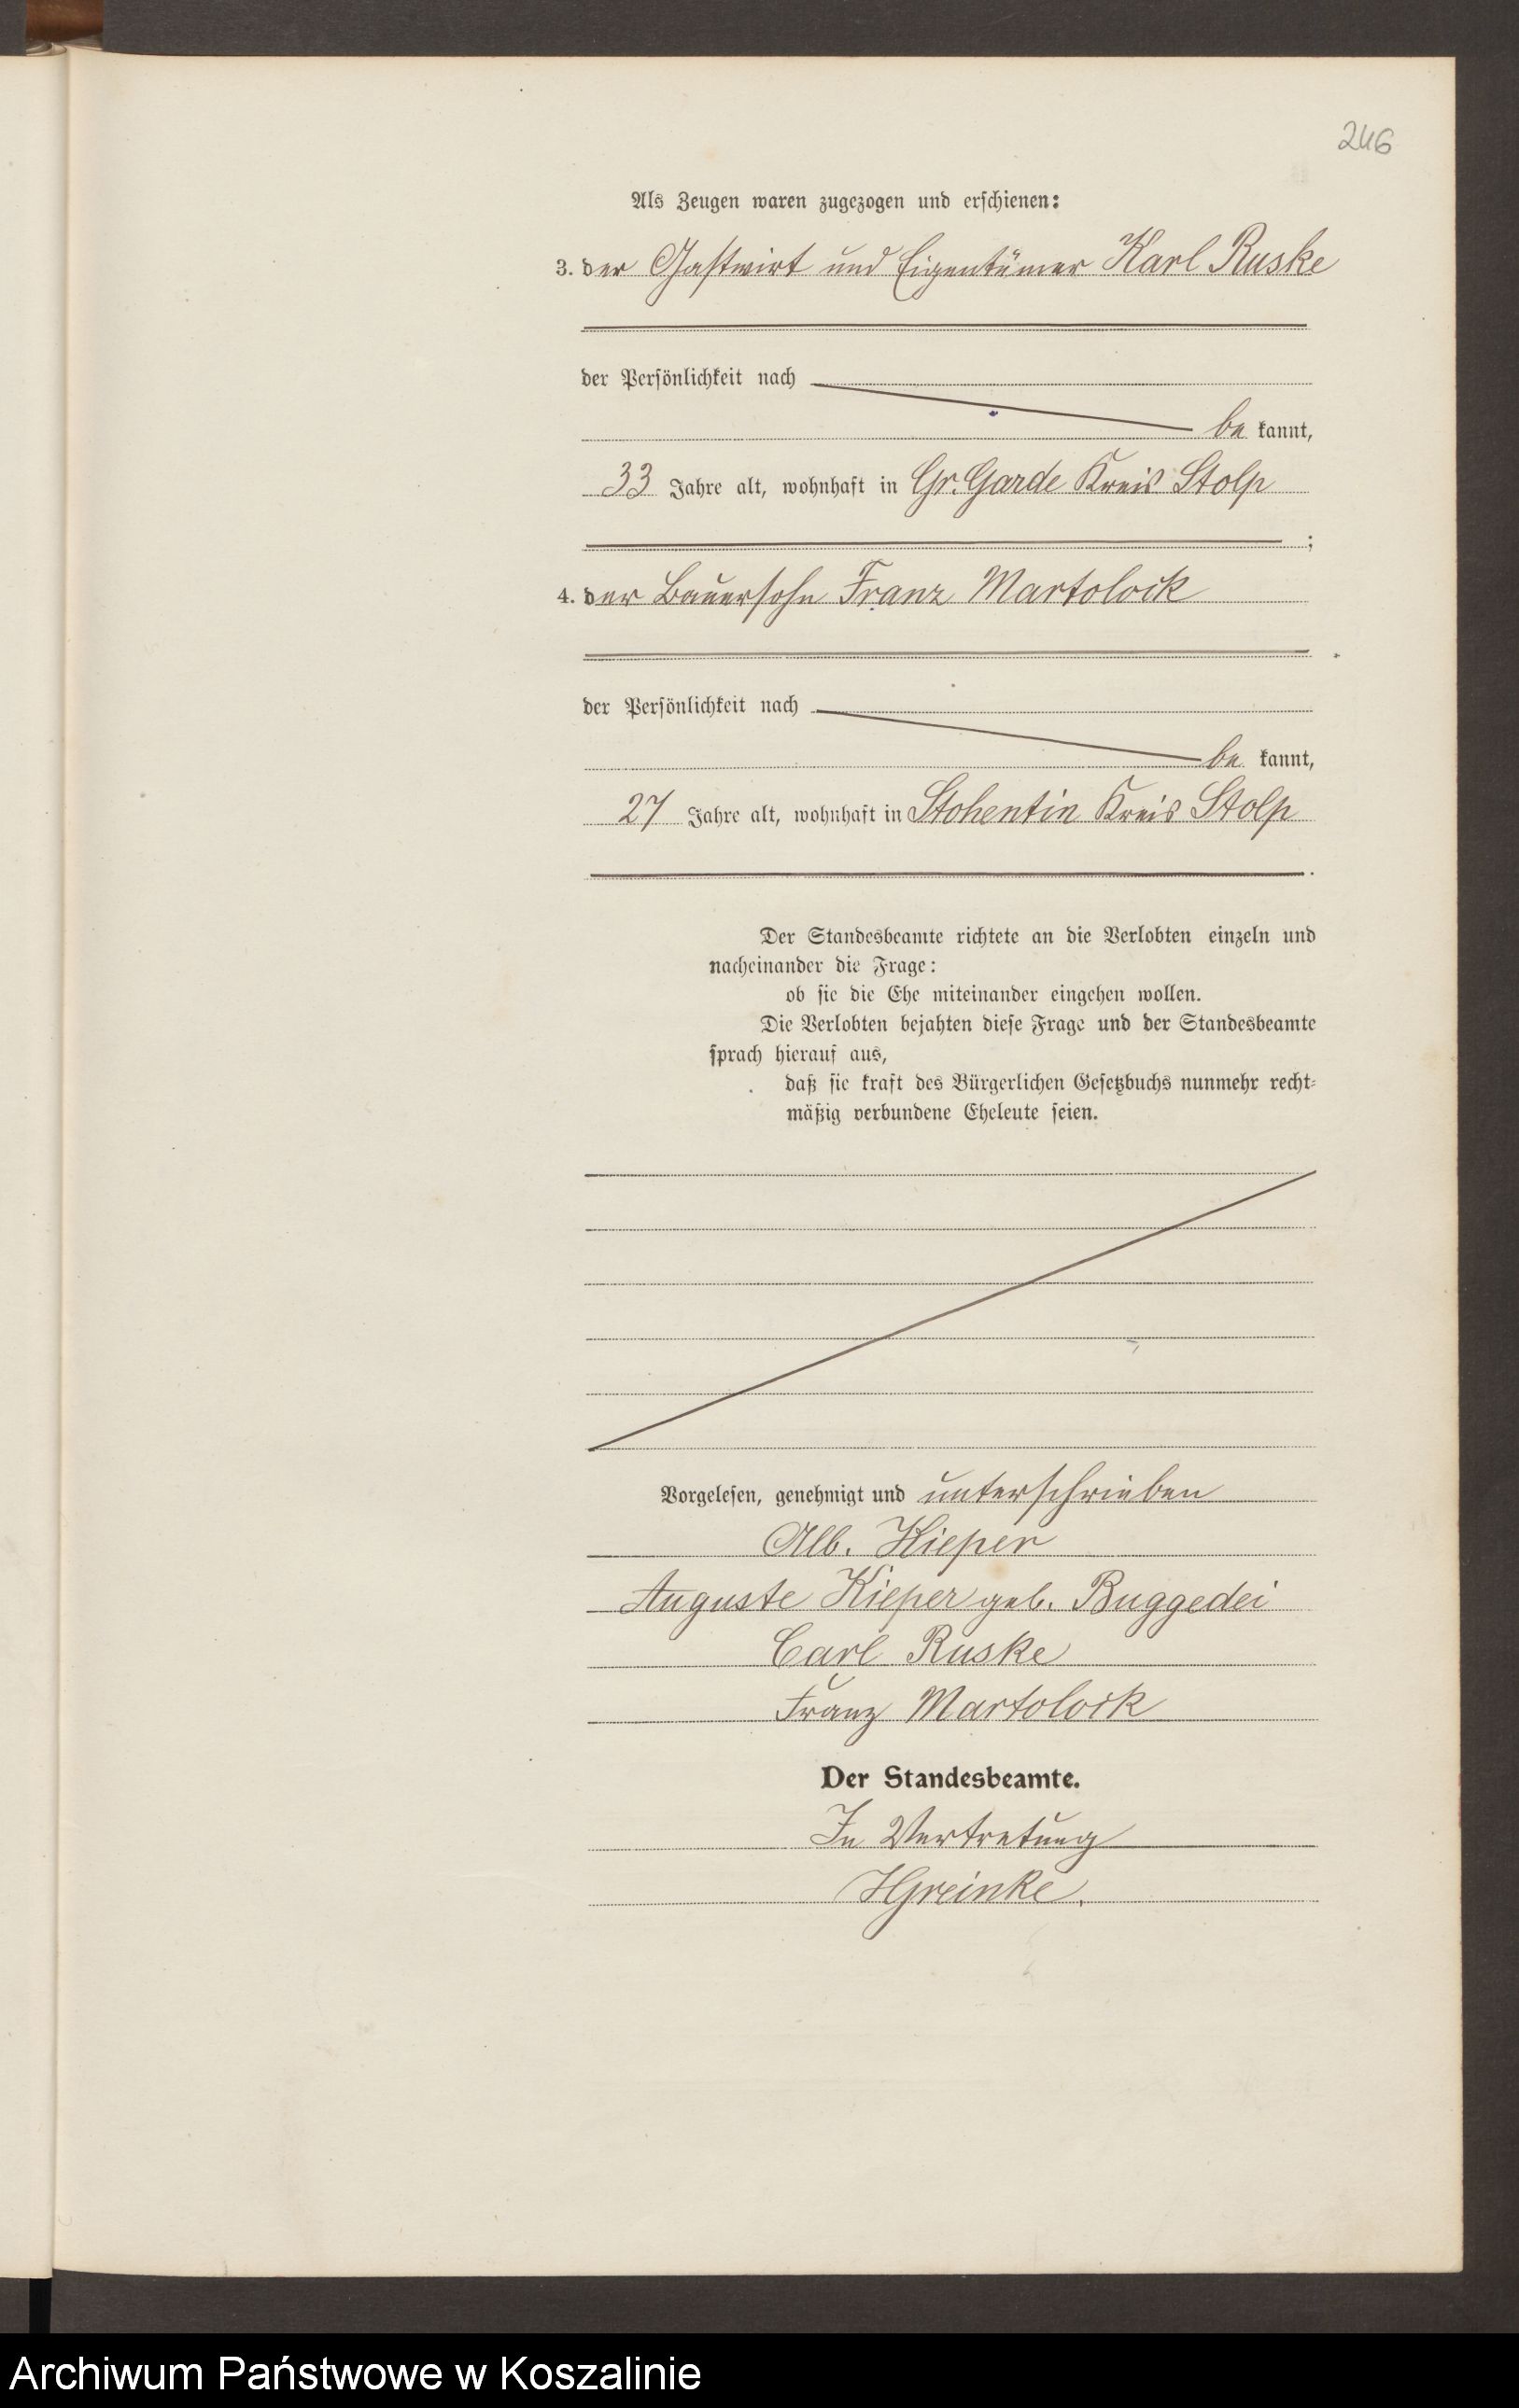 246
Als Zeugen waren zugezogen und erschienen:
3. der Gastwirt und Eigentümer Karl Ruske
der Persönlichkeit nach
be kannt,
33 Jahre alt, wohnhaft in Gr. Garde Kreis Stolp
;
4. der Bauersohn Franz Martolock
der Persönlichkeit nach
be kannt,
27 Jahre alt, wohnhaft in Stohentin Kreis Stolp
.
Der Standesbeamte richtete an die Verlobten einzeln und
nacheinander die Frage:
ob sie die Ehe miteinander eingehen wollen.
Die Verlobten bejahten diese Frage und der Standesbeamte
sprach hierauf aus,
daß sie kraft des Bürgerlichen Gesetzbuchs nunmehr recht-
mäßig verbundene Eheleute seien.
Vorgelesen, genehmigt und unterschrieben
Alb. Kieper
Auguste Kieper geb. Buggedei
Carl Ruske
Franz Martolock
Der Standesbeamte.
In Vertretung
HGreinke.
Archiwum Państwowe w Koszalinie